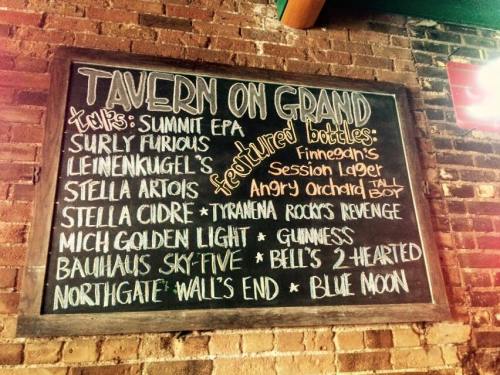 TAVERN ON GRAND
taps: SUMMIT EPA
SURLY FURIOUS
LEINENKUGEL'S
STELLA ARTOIS
featured bottles:
Finnegan's
Session Lager
Angry Orchard TALL BOY
STELLA CIDRE * TYRANENA ROCKY'S REVENGE
MICH GOLDEN LIGHT * GUINNESS
BAUHAUS SKY-FIVE * BELL'S 2-HEARTED
NORTHGATE WALL'S END * BLUE MOON